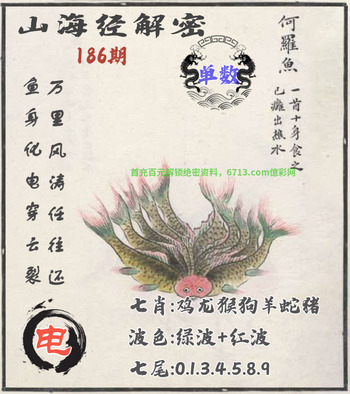 山海经解密
186期
单数
何羅魚
一首十身食之
已癰出熊水
万里风涛任往还
鱼身化电穿云裂
首充百元解锁绝密资料，6713.com信彩网
电
七肖:鸡龙猴狗羊蛇猪
波色:绿波+红波
七尾:0.1.3.4.5.8.9